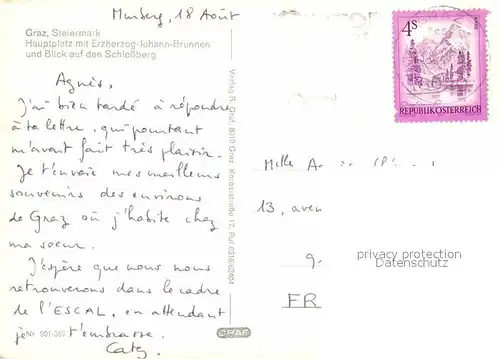 Murberg, 18 Août
Graz, Steiermark
Hauptplatz mit Erzherzog-Johann-Brunnen
und Blick auf den Schloßberg
Agnès,
J'ai bien tardé à répondre
à ta lettre, qui pourtant
m'avait fait très plaisir.
Je t'envoie mes meilleurs
souvenirs des environs
de Graz où j'habite chez
ma soeur.
J'espère que nous nous
retrouverons dans le cadre
de l'ESCAL, en attendant
je t'embrasse.
Caty
Nr. 801-352
GRAF
Verlag R. Graf, 8010 Graz, Ruf 0316/62404
4S
REPUBLIK ÖSTERREICH
Melle
13, aven
9.
FR
privacy protection
Datenschutz